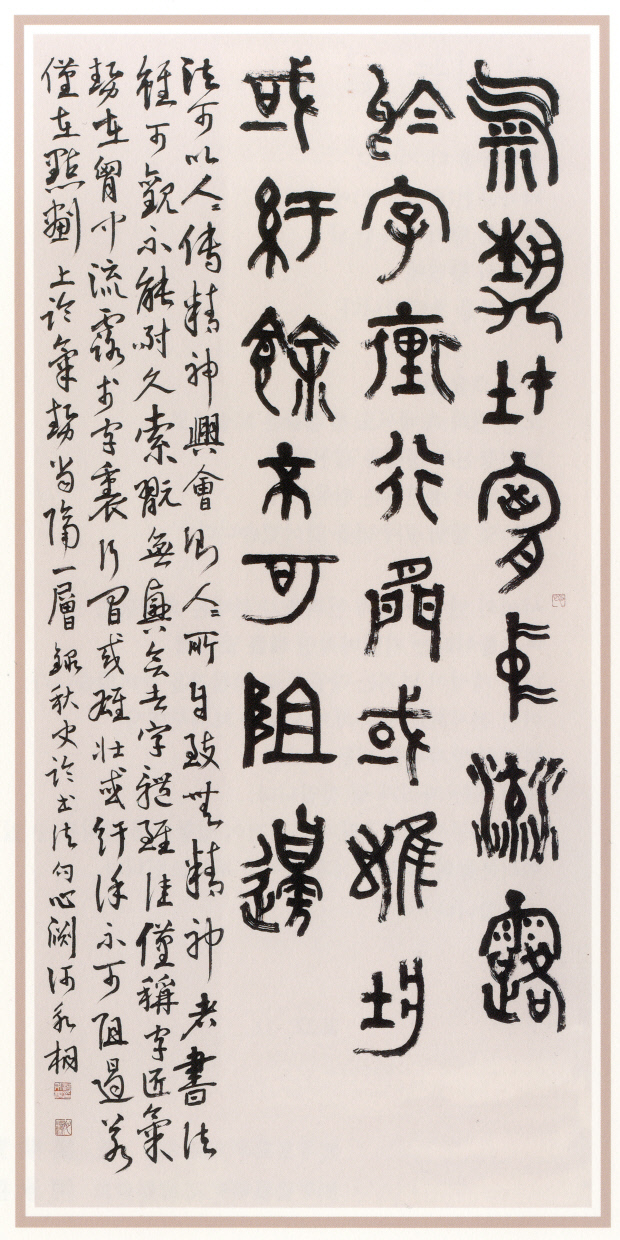 氣勢在胷中流露
於字裏行間或雄壯
或紓餘不可阻遏
法可以人〻傳精神興會則人〻所自致無精神者書法
雖可觀不能耐久索翫無興會者字體雖佳僅稱字匠氣
勢在胷中流露於字裏行間或雄壯或紓徐不可阻遏若
僅在點劃上論氣勢尚隔一層 錄秋史論書法句 心淵河永桐